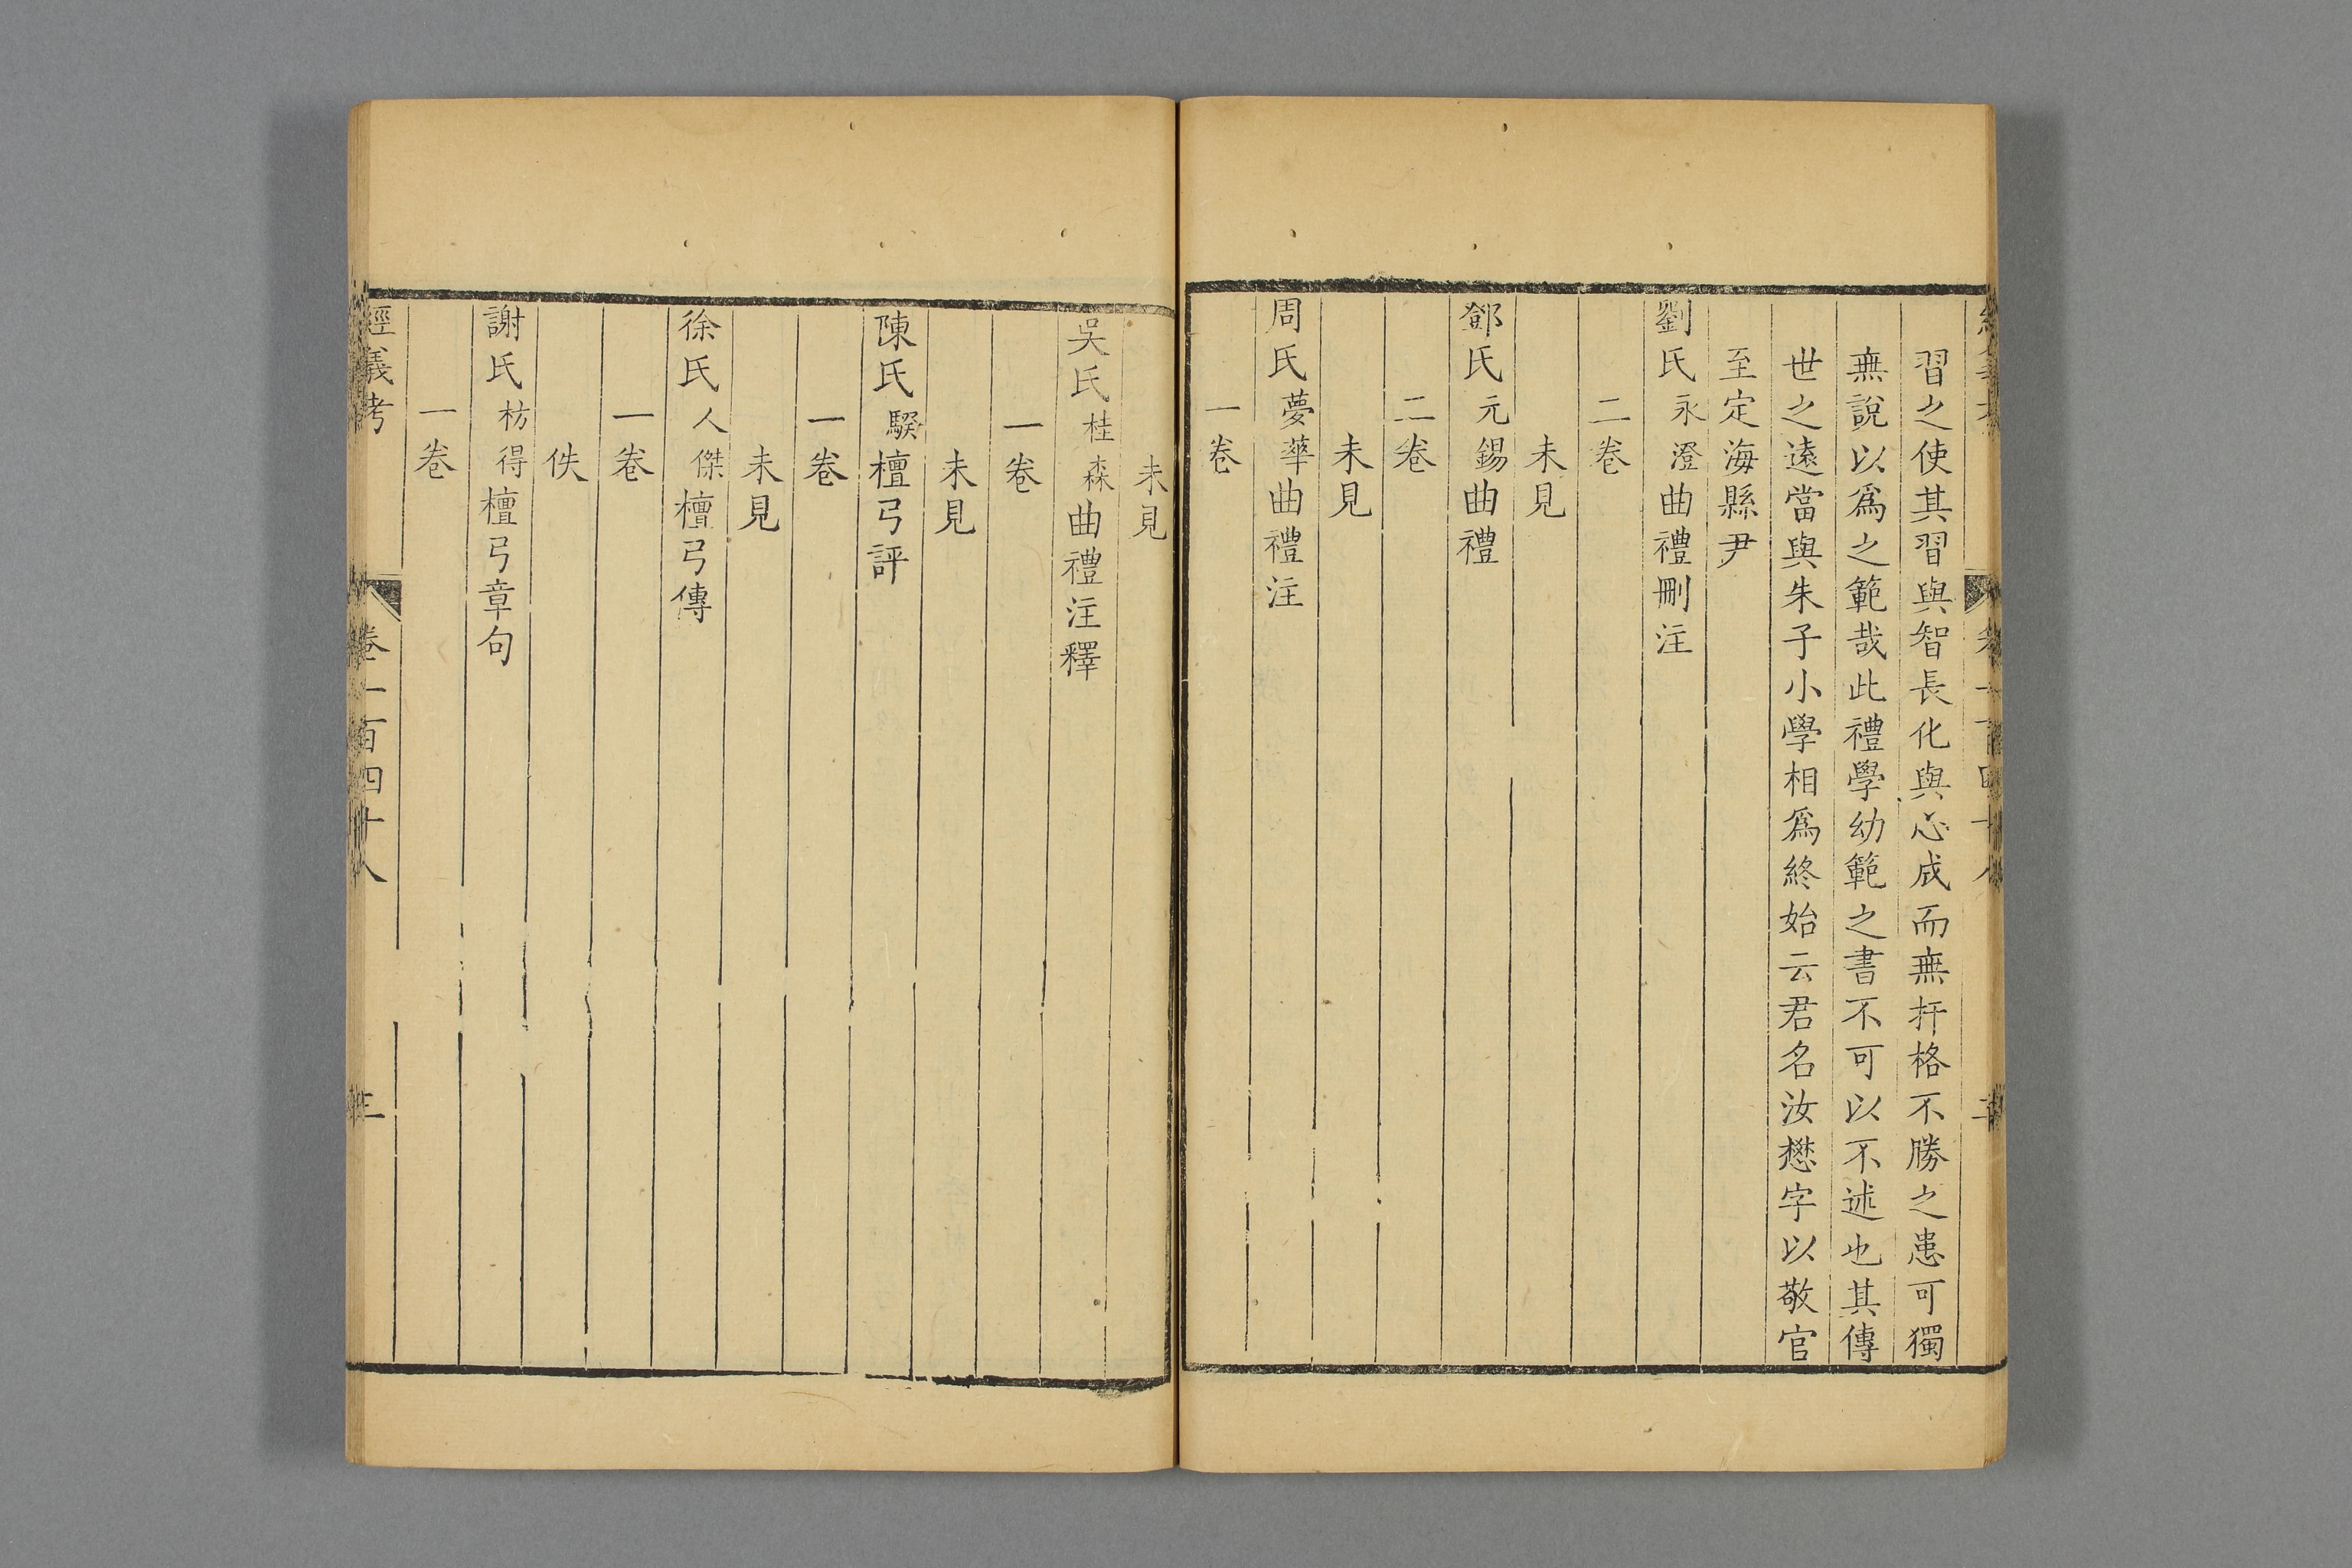 習之使其習與智長化與心成而無扞格不勝之患可獨
無說以爲之範哉此禮學幼範之書不可以不述也其傳
世之遠當與朱子小學相爲終始云君名汝懋字以敬官
至定海縣尹
劉氏永澄曲禮刪注
二卷
未見
鄧氏元錫曲禮
二卷
未見
周氏夢華曲禮注
一卷
未見
吳氏桂森曲禮注釋
一卷
未見
陳氏騤檀弓評
一卷
未見
徐氏人傑檀弓傳
一卷
佚
謝氏枋得檀弓章句
一卷
經義考 卷一百四十八 三